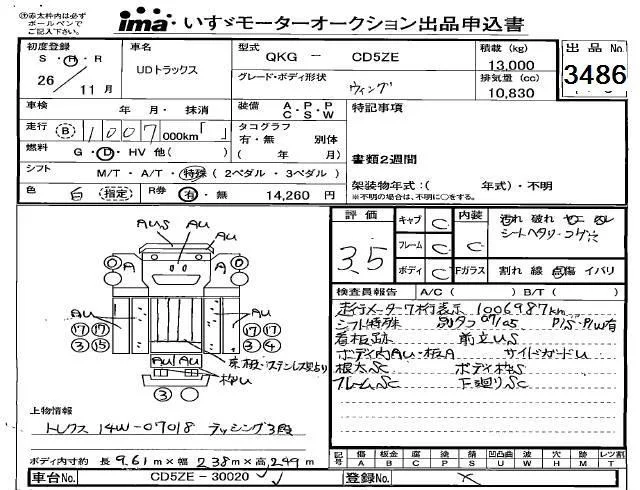 ㋐赤太枠内は必ず
ボールペンで
ご記入下さい。
ima いすゞモーターオークション出品申込書
初度登録
S・H・R
26 11月
車名
UDトラックス
型式
QKG － CD5ZE
グレード・ボディ形状
ウィング
積載 (kg)
13,000
排気量 (cc)
10,830
出品No.
3486
車検 年 月・ 抹消
装備 A・P・P
C S W
特記事項
走行 B 1007 000km「 」
タコグラフ
有・無 別体
( 年 月)
燃料 G・D・HV 他( )
書類2週間
シフト M/T・A/T・特殊 (2ペダル・3ペダル)
色 白 (指定) R券 有・無 14,260 円
架装物年式:( 年式)・不明
※不明の場合は、不明に○をする。
評価
3.5
キャブ C
フレーム C
ボディ C
内装
C
Fガラス
汚れ 破れ
シートヘタリ・コゲ穴
割れ 線 点傷 イバリ
検査員報告 A/C( ) B/T( )
走行メーター7桁表示 1006987km
シフト特殊 P/S・P/W有
看板跡 前立US
ボディ内AU・板A サイドガードU
根太SC ボディ枠S
フレームSC 下廻りSC
AUS AU
A A
AU AU
⑰⑰ ⑰⑰
③⑮ ③④
AU AU
床板・ステンレス貼り
枠U
③
上物情報
トレクス 14W-07018 ラッシング3段
ボディ内寸約 長 9.61m×幅 2.38m×高 2.49m
記号 傷 板金 腐 塗 錆 凹凸曲 波 穴 跡 レツ割
A B C P S U W H M T
車台No. CD5ZE－30020
登録No.